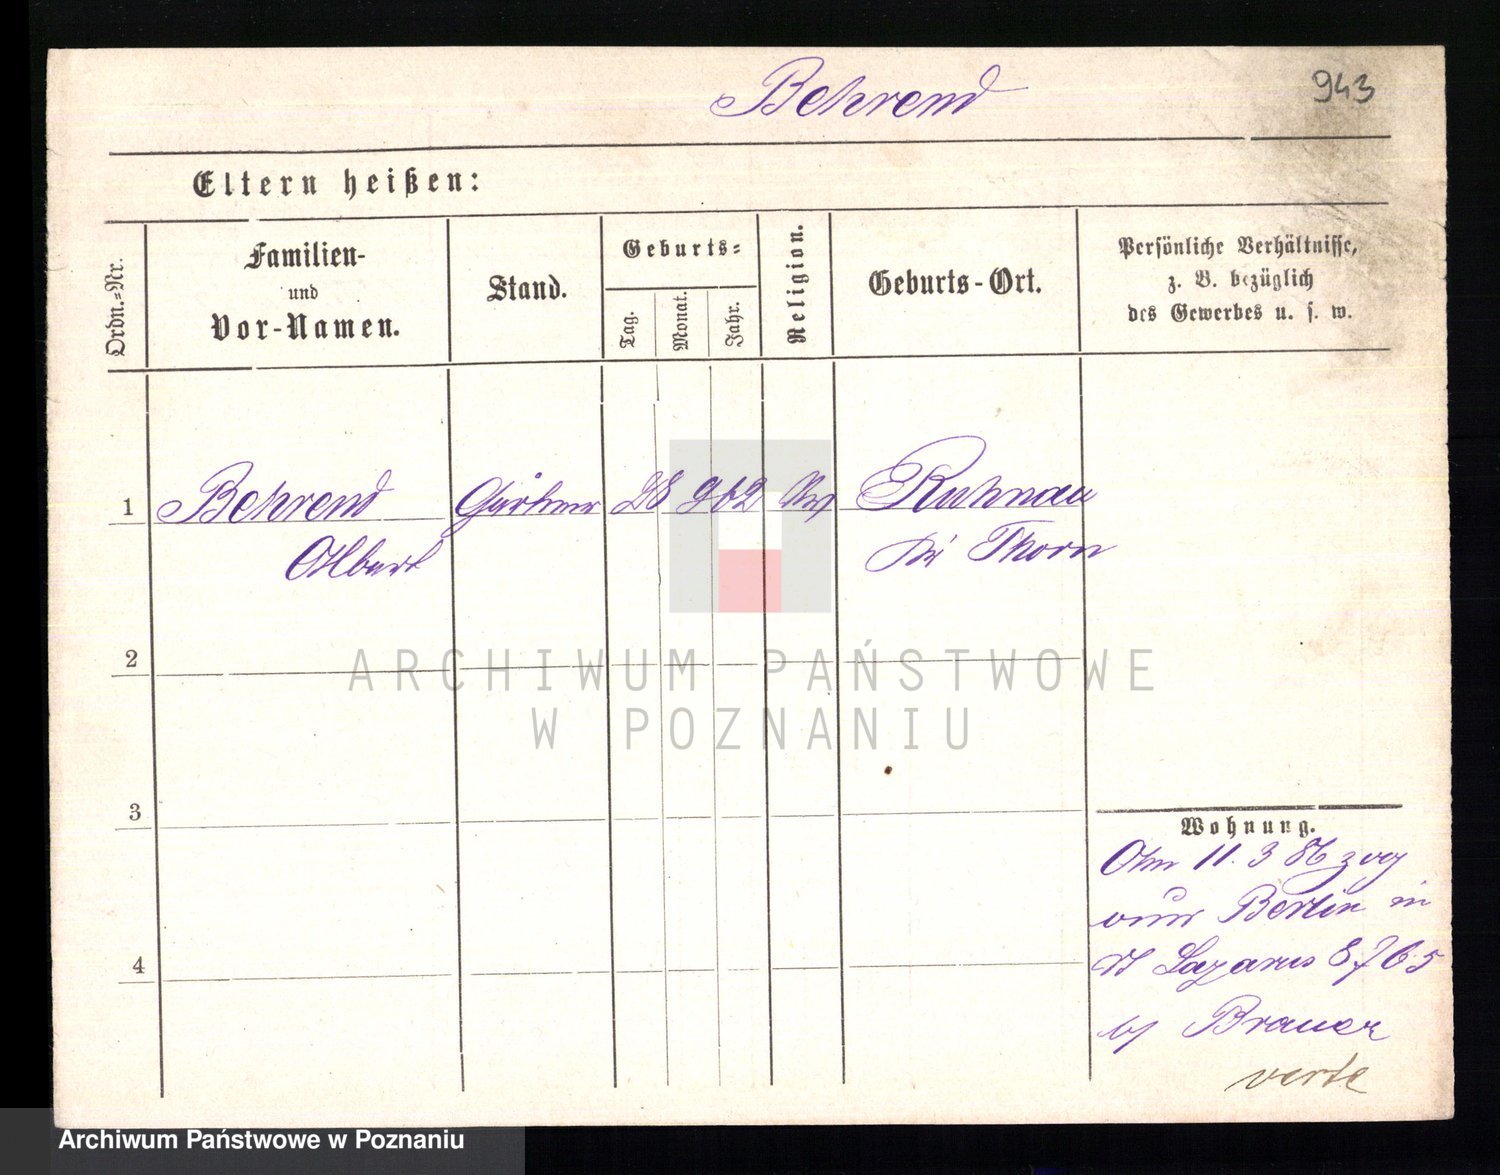 Behrend
943
Eltern heißen:
Ordn.-Nr.
Familien-
und
Vor-Namen.
Stand.
Geburts-
Tag.
Monat.
Jahr.
Religion.
Geburts-Ort.
Persönliche Verhältnisse,
z. B. bezüglich
des Gewerbes u. s. w.
1 Behrend Gärtner 28 9 62 Ruhnau
Albert Thorn
2
3
4
ARCHIWUM PAŃSTWOWE
W POZNANIU
Wohnung.
Am 11. 3 86 zog
von Berlin in
St Lazarus
b/ Brauer
verte
Archiwum Państwowe w Poznaniu